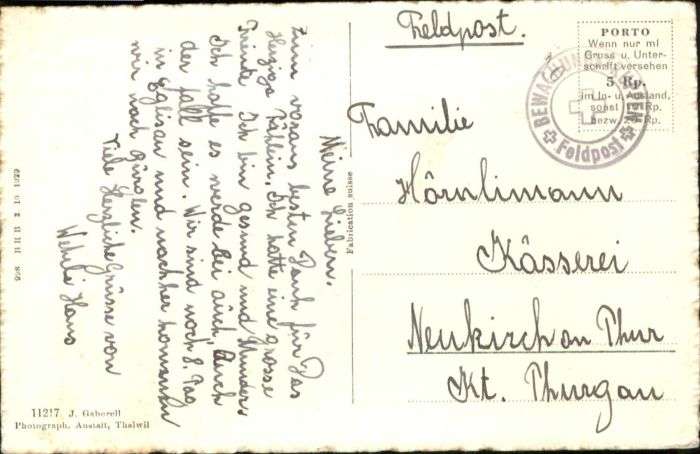 Feldpost.
PORTO
Wenn nur mi
Gruss u. Unter-
schrift versehen
5 Rp.
im In- u. Ausland,
sonst Rp.
bezw. Rp.
BEWACHUNGSTRUPPEN
Feldpost
Familie
Hörnlimann
Kässerei
Neukirch an Thur
Kt. Thurgau
Fabrication suisse
Meine Lieben.
Zum voraus besten Dank für das
Herzige Päklein. Ich hatte eine grosse
Freude. Ich bin gesund und Munders
Ich hoffe es werde bei auch, auch
der fall sein. Wir sind noch 8. Tag
in Eglisau und nachher kommen
wir nach
Viele Herzliche Grüsse von
Wehrli Hans
11217 J. Gaberell
Photograph. Anstalt, Thalwil